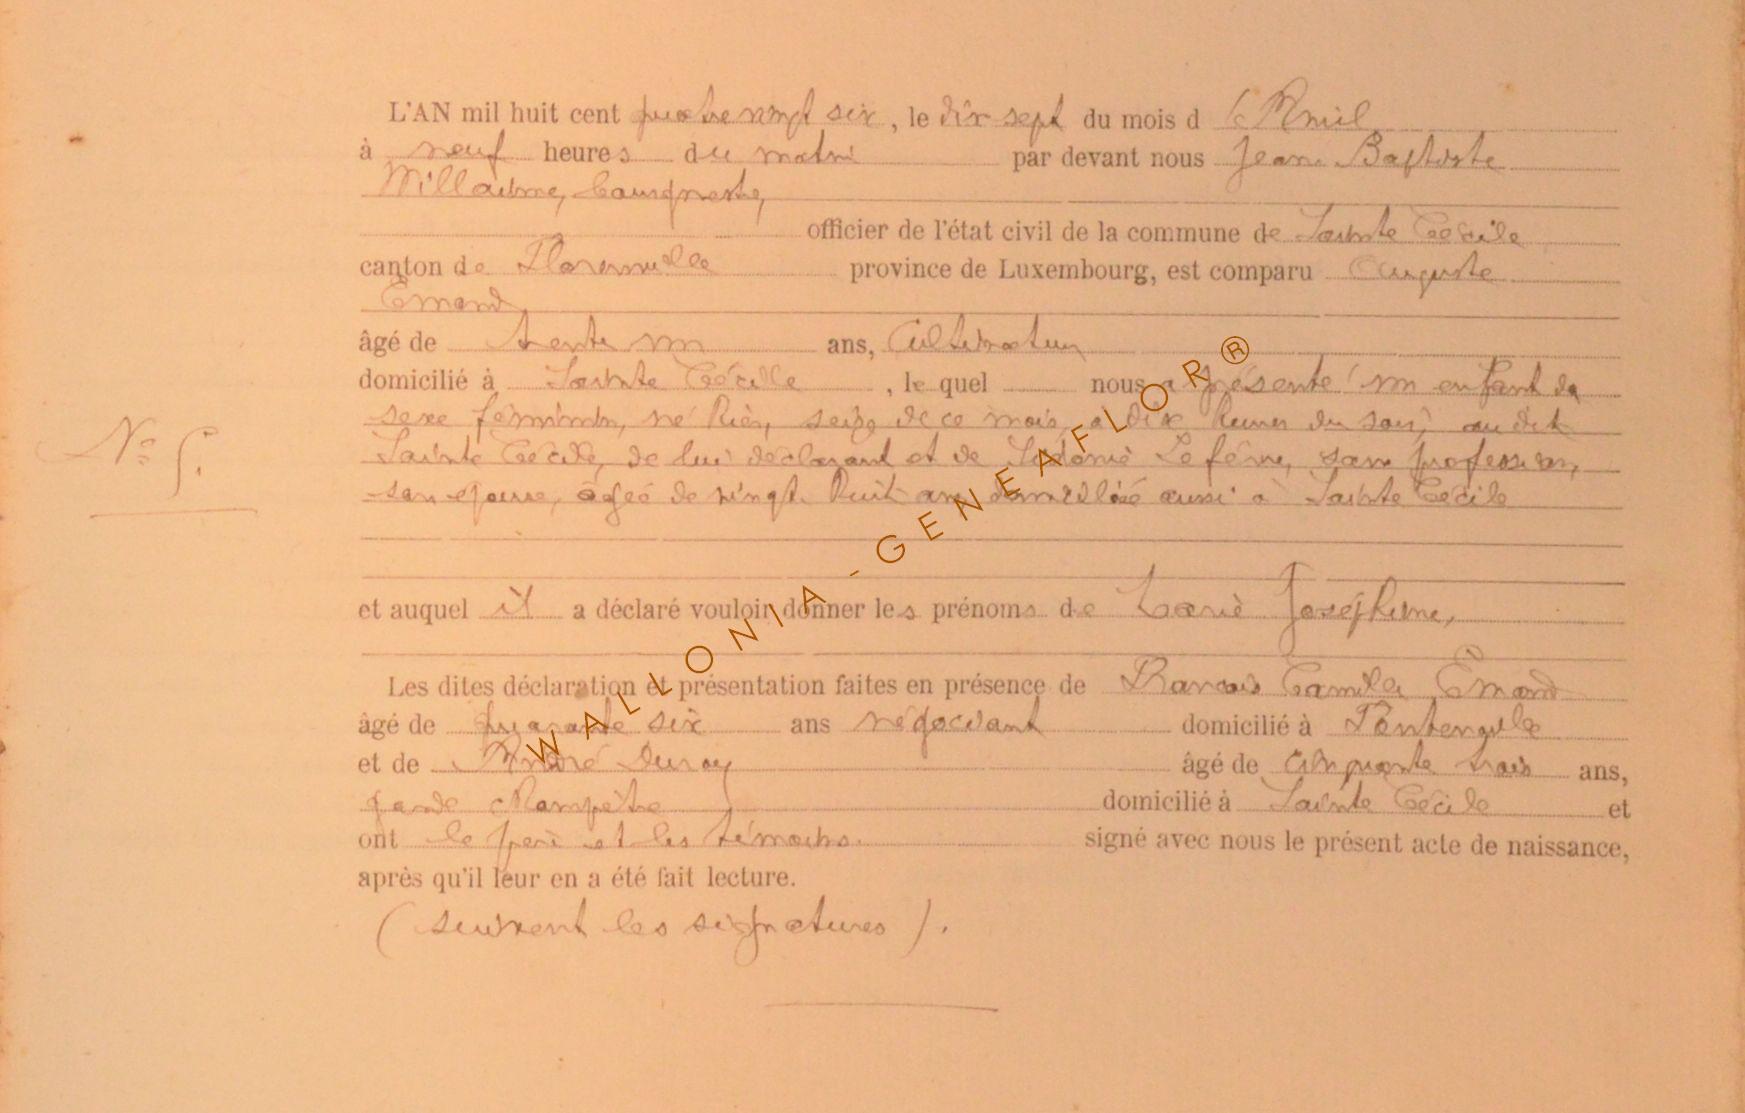 L'AN mil huit cent quatre vingt six, le dix sept du mois d'Avril
à neuf heures du matin par devant nous Jean Baptiste
Willaime, Bourgmestre,
officier de l'état civil de la commune de Sainte Cécile
canton de Florenville province de Luxembourg, est comparu Auguste
Emond
âgé de trente un ans, Cultivateur
domicilié à Sainte Cécile, le quel nous a présenté un enfant du
sexe féminin, né hier, seize de ce mois, à dix heures du soir, au dit
Sainte Cécile, de lui déclarant et de Lefèvre, sans profession,
son épouse, âgée de vingt huit ans domiciliée aussi à Sainte Cécile
N° 5.
et auquel il a déclaré vouloir donner les prénoms de Marie Joséphine,
Les dites déclaration et présentation faites en présence de François Camille Emond
âgé de quarante six ans négociant domicilié à Fontenoille
et de André Duroy âgé de cinquante trois ans,
garde champêtre domicilié à Sainte Cécile et
ont le père et les témoins. signé avec nous le présent acte de naissance,
après qu'il leur en a été fait lecture.
(suivent les signatures).
WALLONIA-GENEAFLOR®